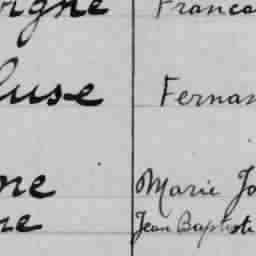 igne Franca
luse Fernan
ne Marie Jo
re Jean Baptiste